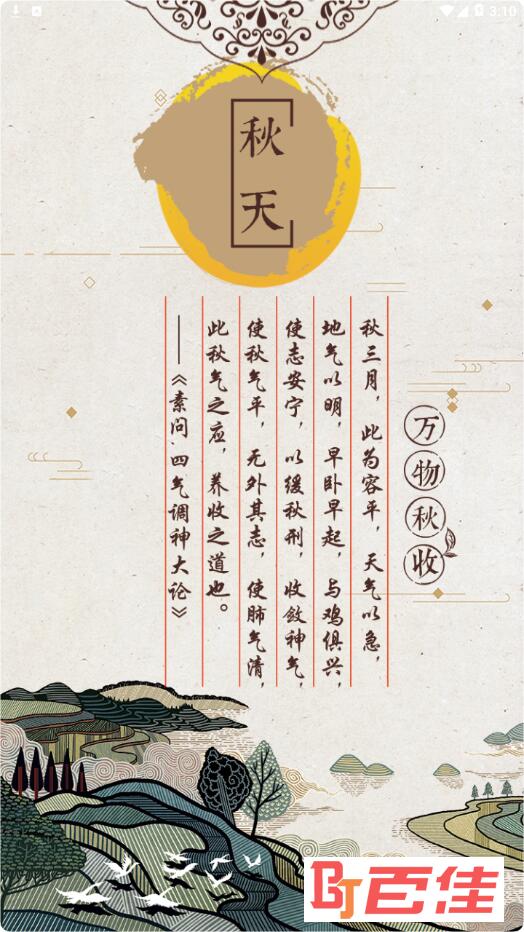 3:10
秋天
万物秋收
秋三月，此为容平，天气以急，
地气以明，早卧早起，与鸡俱兴，
使志安宁，以缓秋刑，收敛神气，
使秋气平，无外其志，使肺气清，
此秋气之应，养收之道也。
——《素问·四气调神大论》
BJ百佳